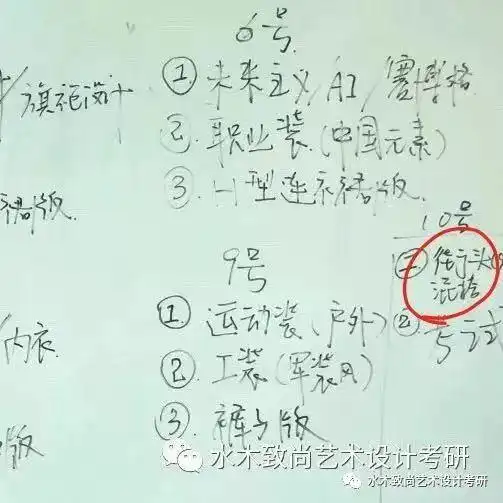 6号
①未来主义/AI/赛博格
②.职业装.(中国元素)
③.H型连衣裙版.
/旗袍设计
裙版.
9号
①运动装(户外)
②.工装(军装风)
③.裤子版
/内衣.
版
10号
①街头
混搭
②
水木致尚艺术设计考研
水木致尚艺术设计考研